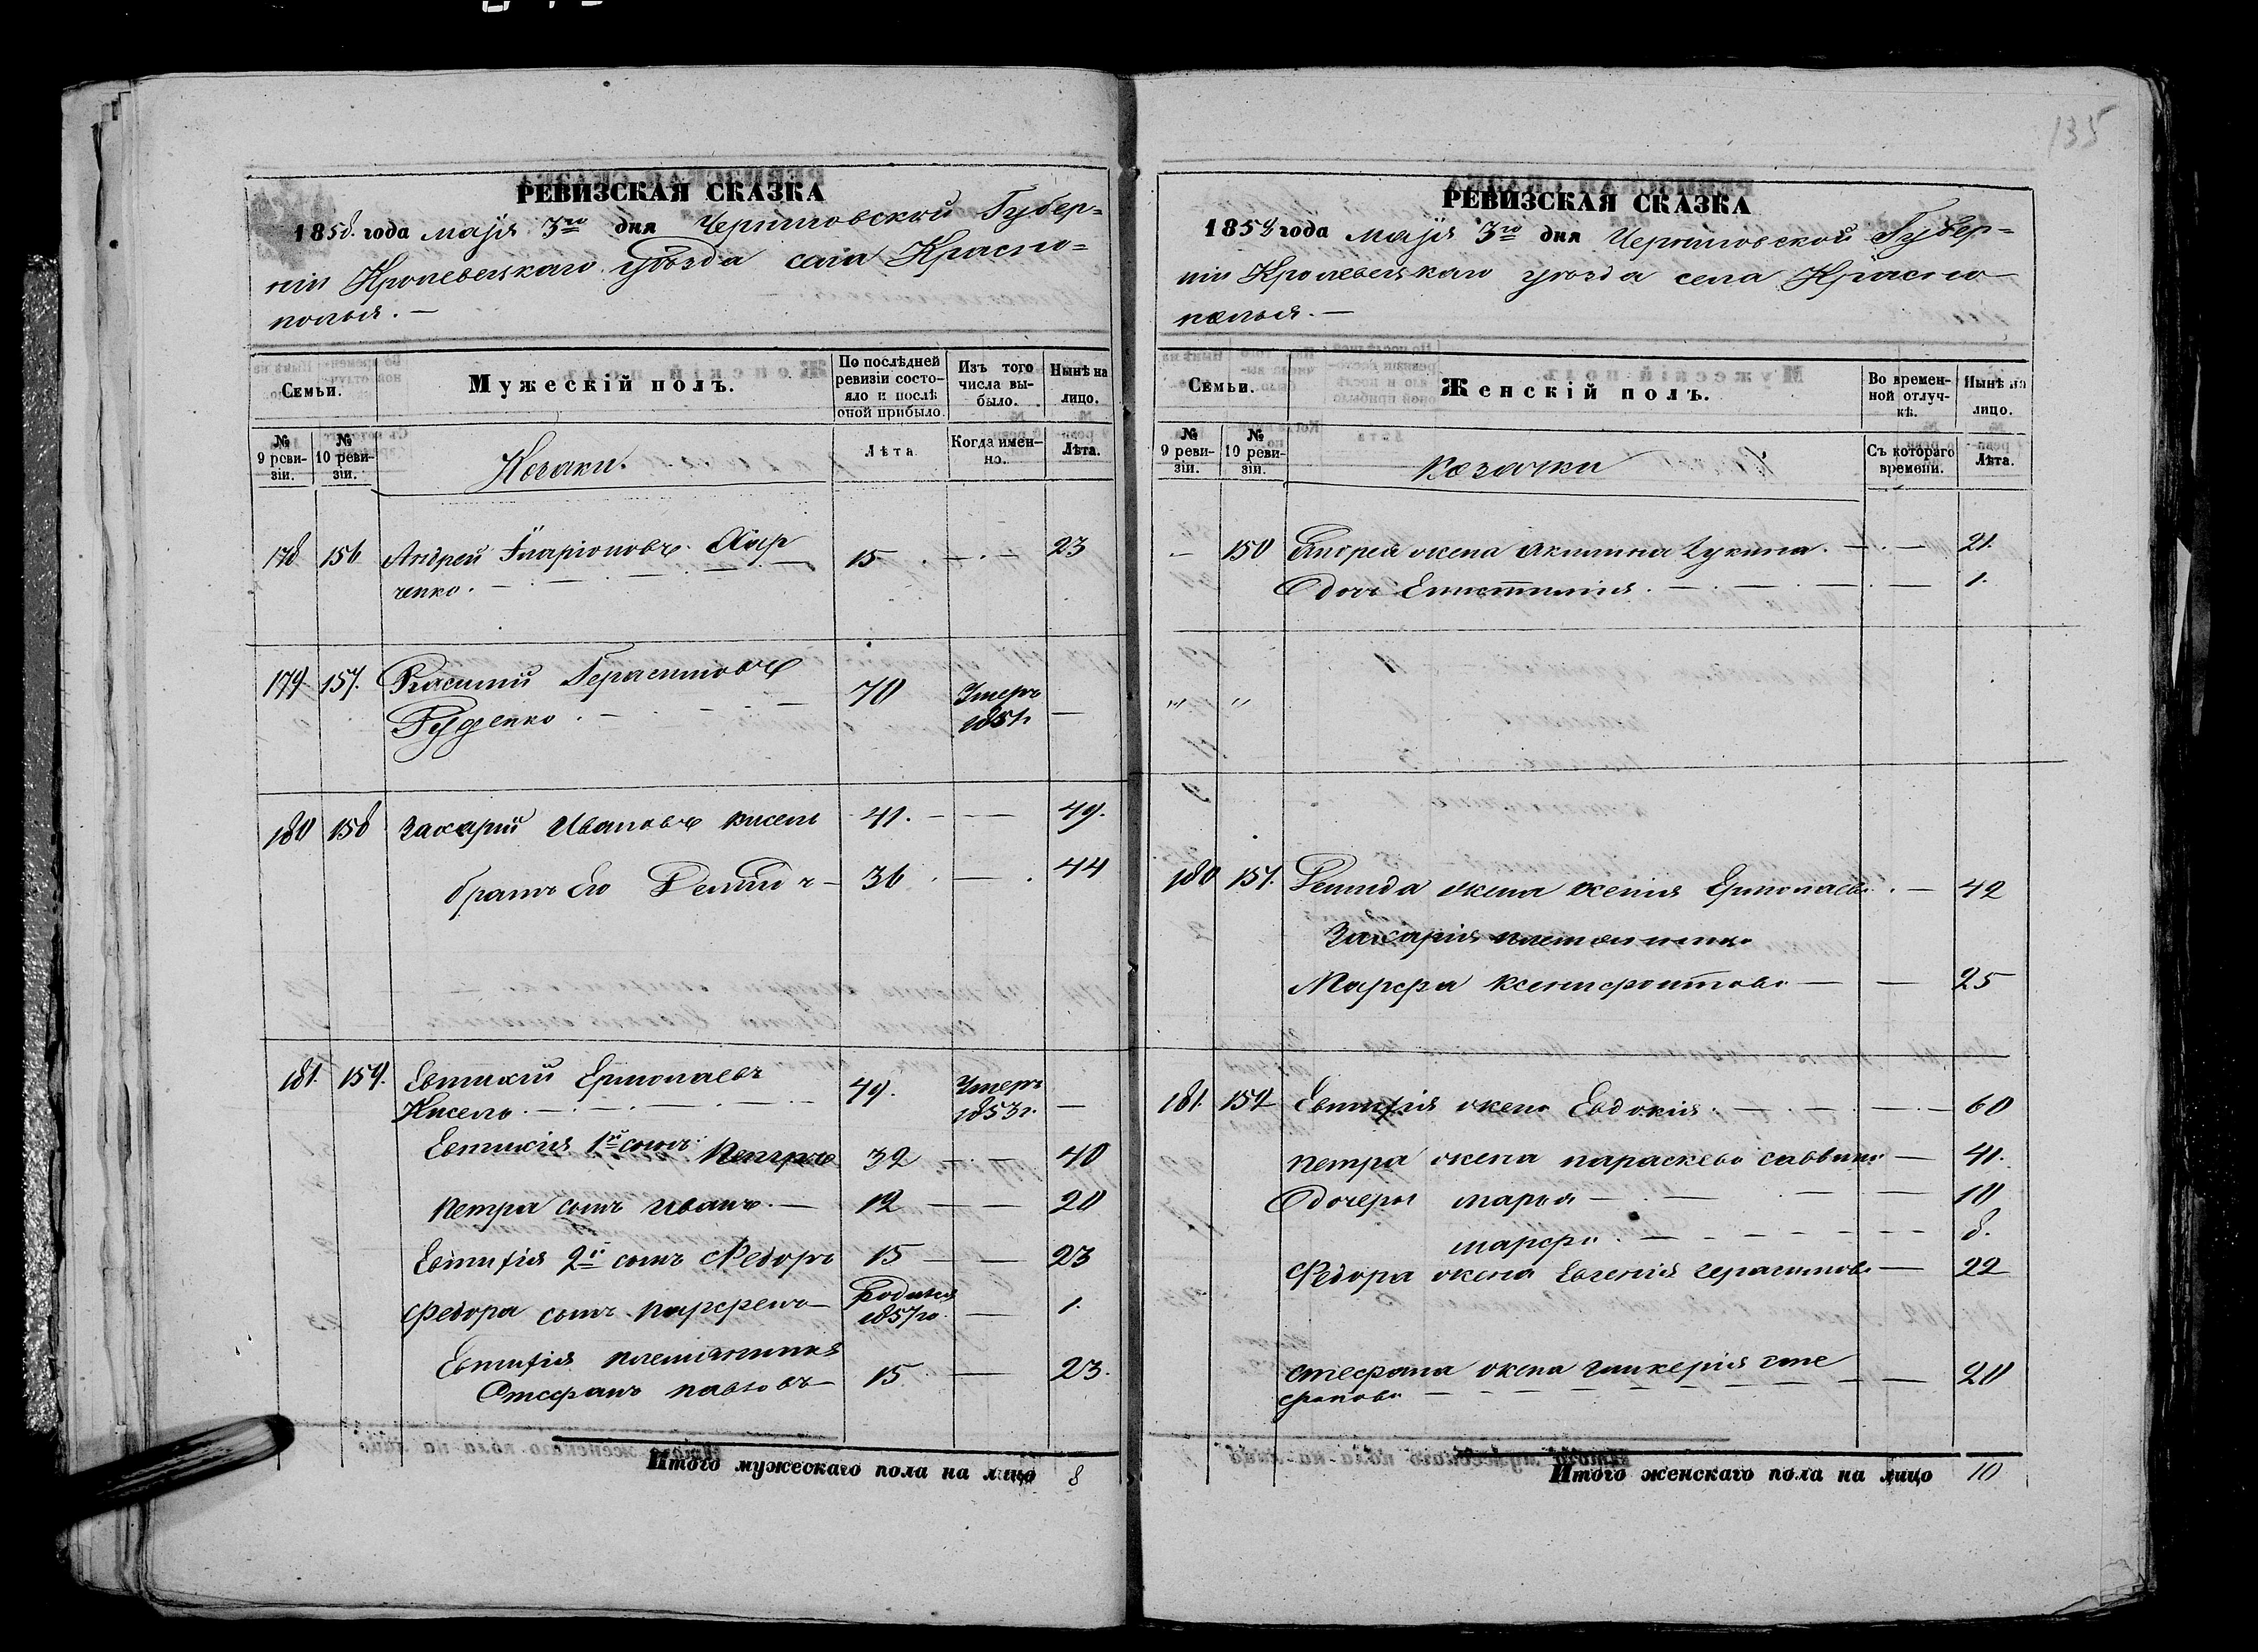 135
РЕВИЗСКАЯ СКАЗКА
1858 года маiя 3го дня Черниговской Губер=
нiи Кролевецкаго уѣзда села Красно=
полья. —
Семьи.
Мужескiй полъ.
По послѣдней ревизiи состо-
яло и послѣ оной прибыло.
Изъ того числа вы-
было.
Нынѣ на лицо.
№ 9 реви-
зiи.
№ 10 реви-
зiи.
Козаки.
Лѣта
Когда имен-
но.
Лѣта.
178 156 Андрей Иларiоновъ 15 — — 23
ченко.
179. 157. Герасимовъ 70 Умеръ
Руденко. 1851г. —
180 158 Захарiй Ивановъ Кисель 41. — — 49.
братъ его 36 — 44
181. 159. Евтихiй Ермолаевъ 49. Умеръ
Кисель. 1853г. —
Евтихiя 1й сынъ Петръ 32 — — 40
Петра сынъ Иванъ. — 12 — — 20
Евтихiя 2й сынъ Федоръ 15 — — 23
Федора сынъ Парфенъ — Родился 1857го — 1.
Евтихiя племянникъ
Стефанъ Павловъ — 15 — 23.
Итого мужескаго пола на лицо 8
РЕВИЗСКАЯ СКАЗКА
1858 года маiя 3го дня Черниговской Губер=
нiи Кролевецкаго уѣзда села Красно
полья. —
Семьи.
Женскiй полъ.
Во времен-
ной отлуч-
кѣ.
Нынѣ на лицо.
№ 9 реви-
зiи.
№ 10 реви-
зiи.
Козачки
Съ котораго времени.
Лѣта.
— 150 Андрея жена Акилина Лукина. — — 21.
дочь — 1.
" "
180 151. жена Ксенiя Ермолаева. — 42
Захарiя племянница
Марфа Ксенофонтова — — 25
181. 152 Евтихiя жена Евдокiя. — — 60
Петра жена Параскева Саввина — 41.
дочеры Марья — — 10
Марфа. — — 8.
Федора жена Евгенiя Герасимова — 22
Стефана жена Гликерiя Сте
фанова — — 20
Итого женскаго пола на лицо 10